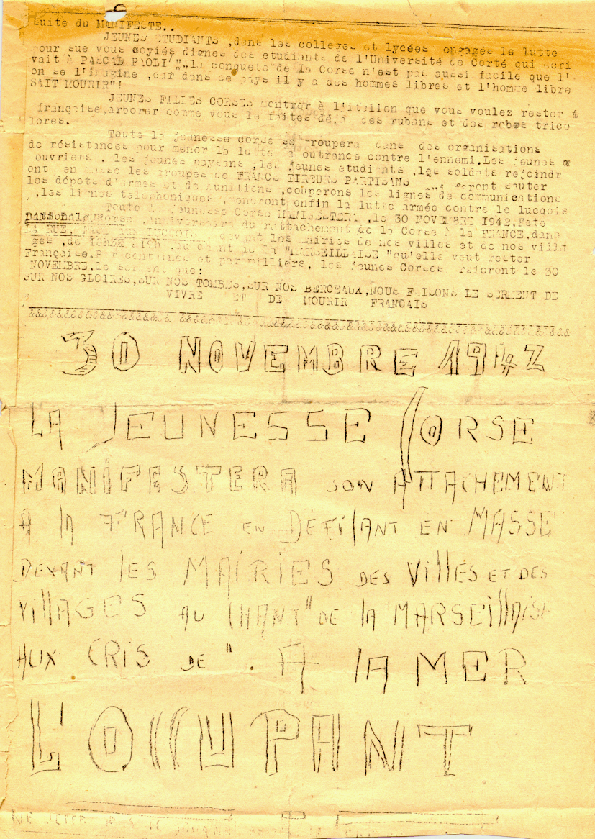 Suite du MANIFESTE..
JEUNES ETUDIANTS ,dans les colleges et lycées engagez la lutte
pour que vous soyiés dignes des étudiants de l'Université de Corté qui écri
vait à PASCAL PAOLI "..la conquete de la Corse n'est pas aussi facile que l'
on se l'imagine ,car dans ce pays il y a des hommes libres et l'homme libre
SAIT MOURIR"!
JEUNES FILLES CORSES montrer à l'italien que vous voulez rester
française,arborer comme vous le faites déjà des rubans et des robes trico
lores.
Toute la jeunesse corse se groupera dans des organisations
de résistances pour mener la lutte à outrance contre l'ennemi.Les jeunes
ouvriers , les jeunes paysans ,les jeunes étudiants ,les soldats rejoindr
ont en masse les groupes de FRANCS TIREURS PARTISANS feront sauter
les dépots d'armes et de munitions ,couperons les lignes de communications
,les lignes téléphoniques ,meneront enfin la lutte armée contre le lucquois
Toute la jeunesse Corse MANIFESTERA , le 30 NOVEMBRE 1942,
anniversaire du rattachement de la Corse à la FRANCE,dans
les mairies de nos villes et de nos villa
ges , "MARSEILLAISE "qu'elle veut rester
Française.Par centaines et par milliers, les jeunes Corses jureront le 30
NOVEMBRE,le serment que:
SUR NOS GLOIRES,SUR NOS TOMBES,SUR NOS BERCEAUX,NOUS FAISONS LE SERMENT DE
VIVRE ET DE MOURIR FRANCAIS
30 NOVEMBRE 1942
LA JEUNESSE CORSE
MANIFESTERA SON ATTACHEMENT
A lA FRANCE EN DÉFIlANT EN MASSE
DEVANT lES MAIRIES DES VIllES ET DES
VIllAGES AU CHANT "DE lA MARSEIllAISE
AUX CRIS DE ". A lA MER
L'OCCUPANT